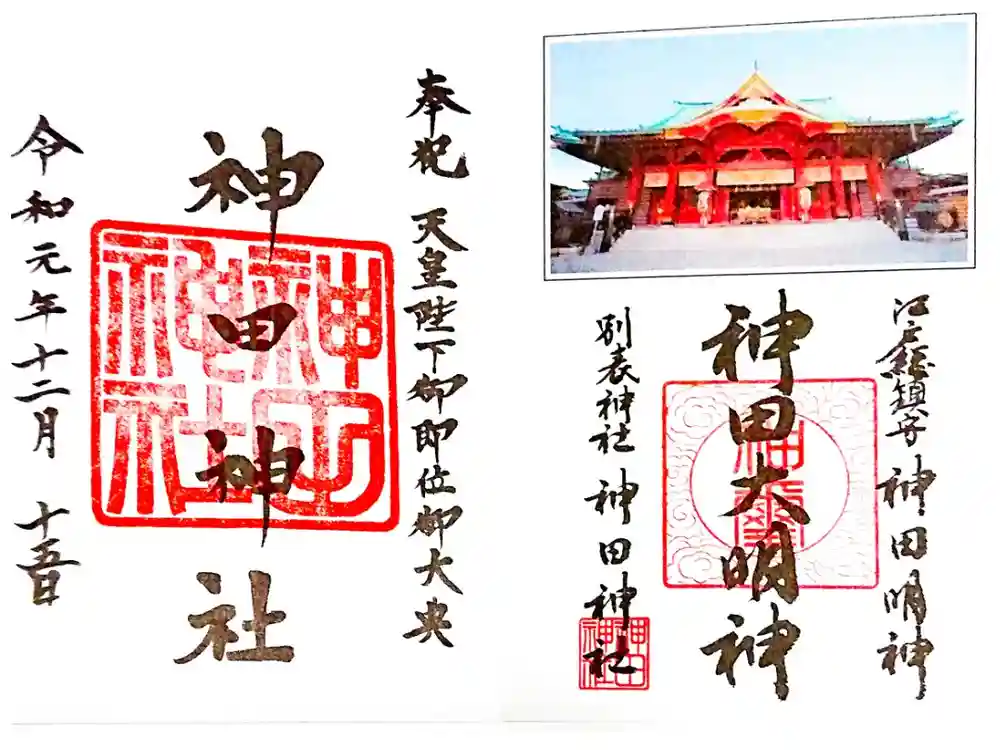 江戸総鎮守 神田明神
神田大明神
別表神社 神田神社
奉祝 天皇陛下御即位御大典
神田神社
令和元年十二月 十五日
神田神社